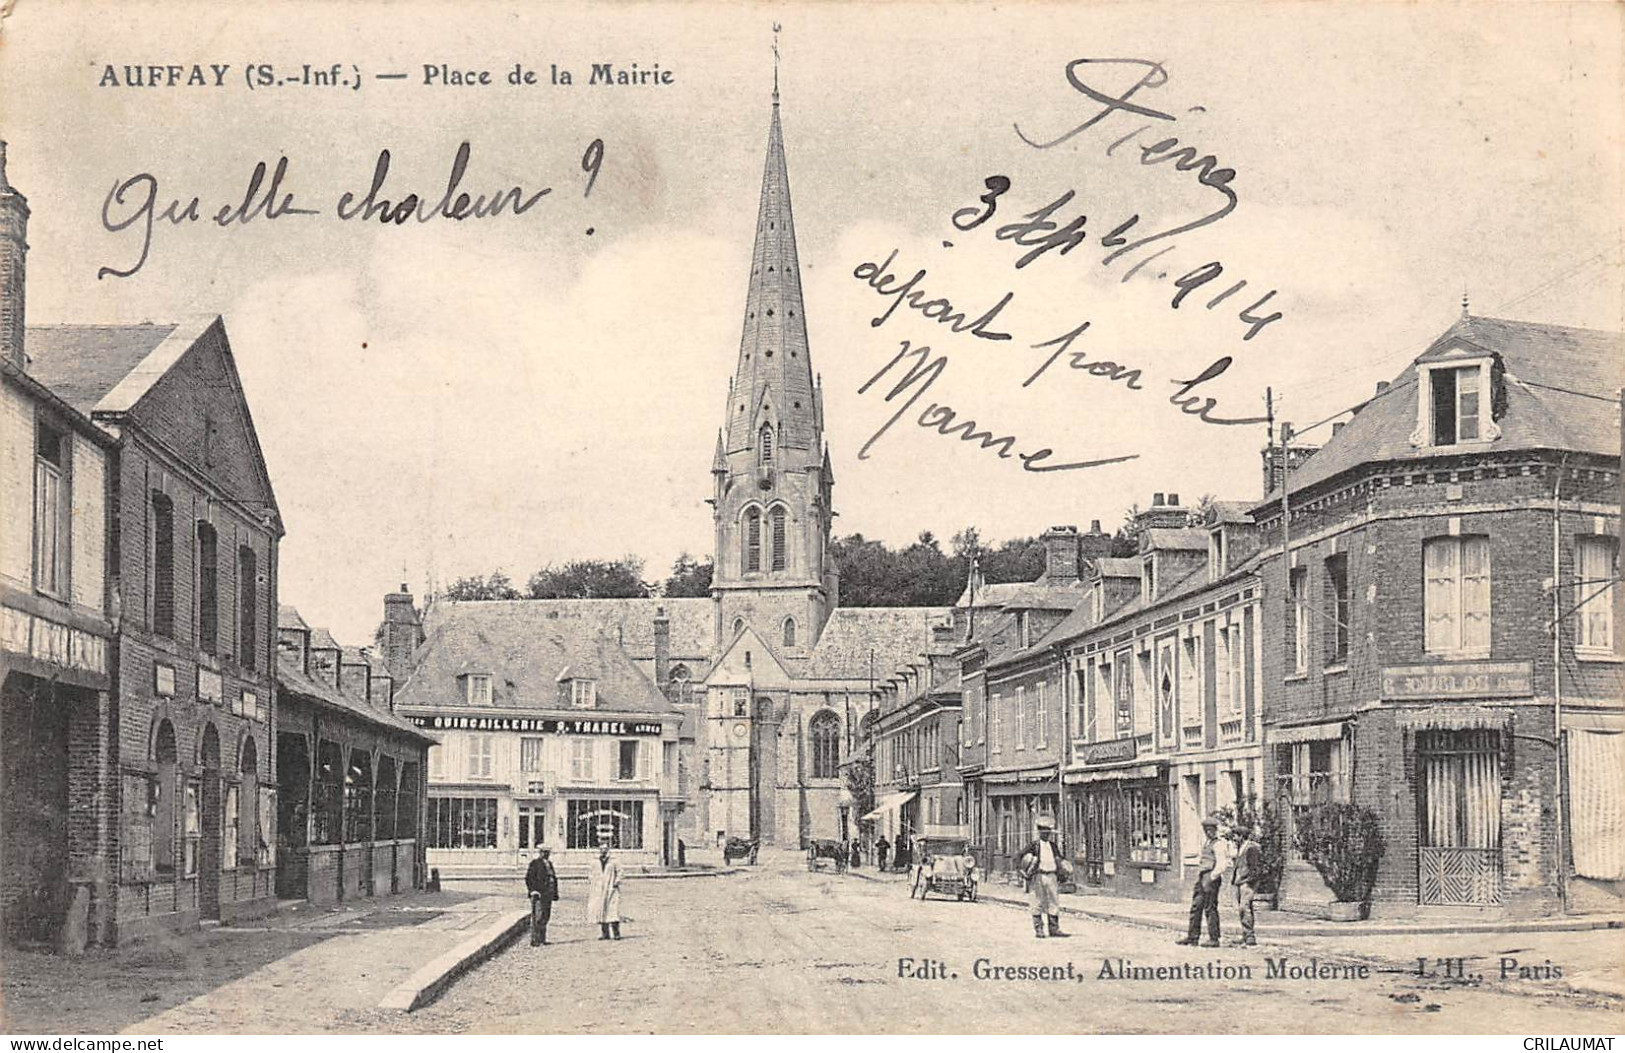 AUFFAY (S.-Inf.) — Place de la Mairie
Quelle chaleur ?
Pierre
3 Sept 1914
départ pour la
Marne
QUINCAILLERIE G. THAREL
DUCLOS
Edit. Gressent, Alimentation Moderne — L'H., Paris
CRILAUMAT